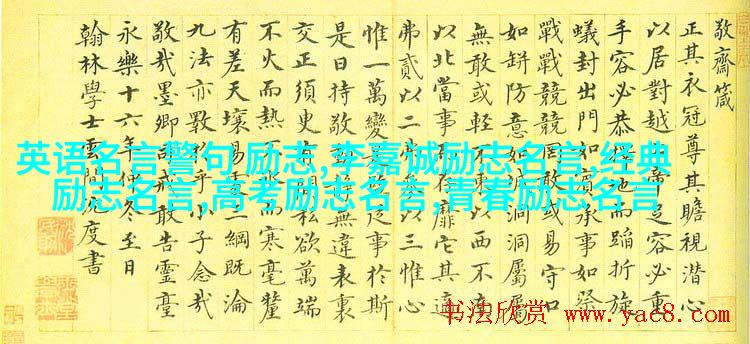 敬齋箴
正其衣冠尊其瞻視潛心
以居對越帝足容必重
手容必恭地而蹈折旋
蟻封出門如賓承事如祭
戰戰兢兢罔敢或易守口
如缾防意如洞洞屬屬
無敢或輕不東以西不
以北當事存靡它其適
弗貳以二參以三惟心
惟一萬變從事於斯
是日持敬無違表裏
交正須臾私欲萬端
不火而熱而寒毫釐
有差天壤易三綱既淪
九法亦斁乎小子念哉
敬哉墨卿戒敢告靈臺
永樂十六年仲冬至日
翰林學士雲間度書
英语名言警句 励志,李嘉诚励志名言,经典
励志名言,高考励志名言,青春励志名言
书法欣赏
www.yac8.com